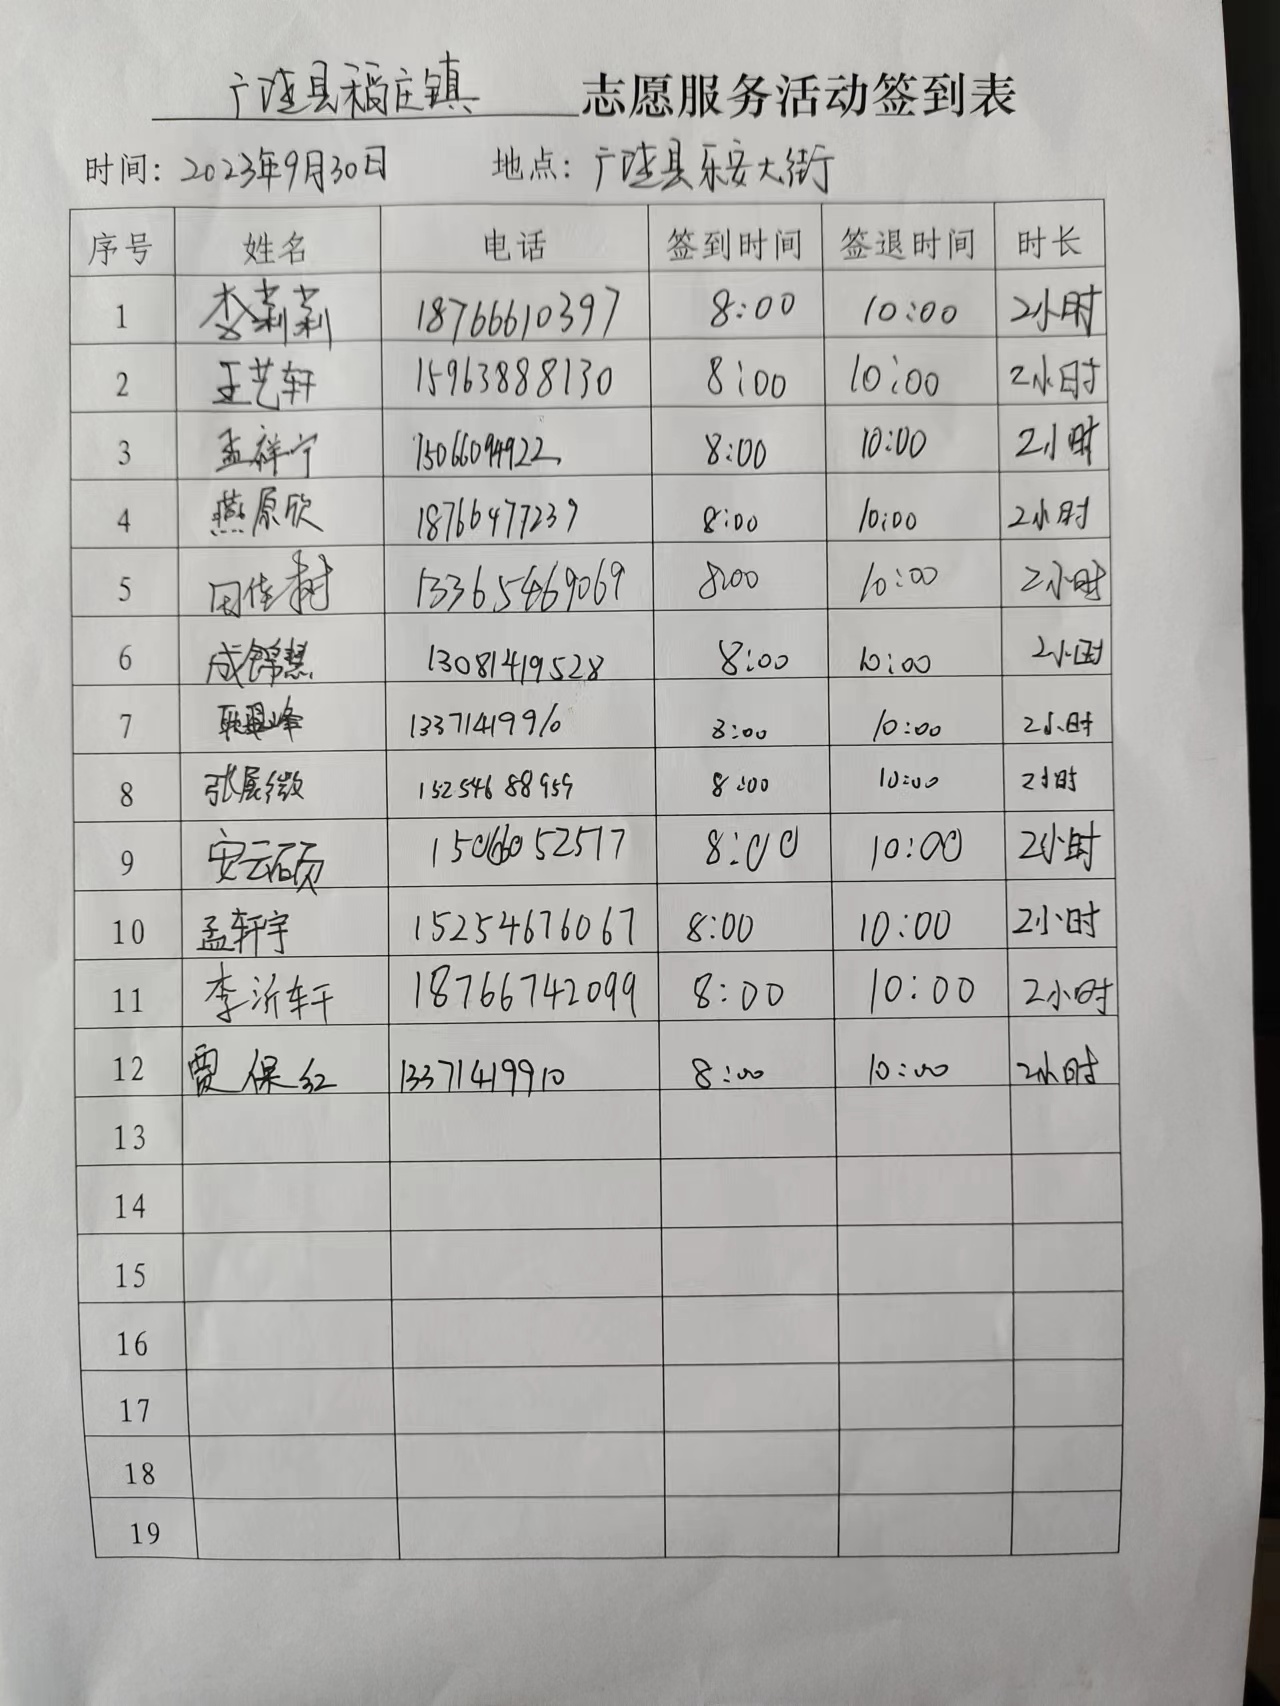 广饶县稻庄镇 志愿服务活动签到表
时间：2023年9月30日 地点：广饶县乐安大街
序号 姓名 电话 签到时间 签退时间 时长
1 李莉莉 18766610397 8:00 10:00 2小时
2 王艺轩 15963888130 8:00 10:00 2小时
3 孟祥宁 15066094922 8:00 10:00 2小时
4 燕原欣 18766477239 8:00 10:00 2小时
5 田佳树 13365469069 8:00 10:00 2小时
6 成锦慧 13081419528 8:00 10:00 2小时
7 13371419910 8:00 10:00 2小时
8 张展微 15254688959 8:00 10:00 2小时
9 安云硕 15066052517 8:00 10:00 2小时
10 孟轩宇 15254676067 8:00 10:00 2小时
11 李沂轩 18766742099 8:00 10:00 2小时
12 贾保红 13371419910 8:00 10:00 2小时
13
14
15
16
17
18
19